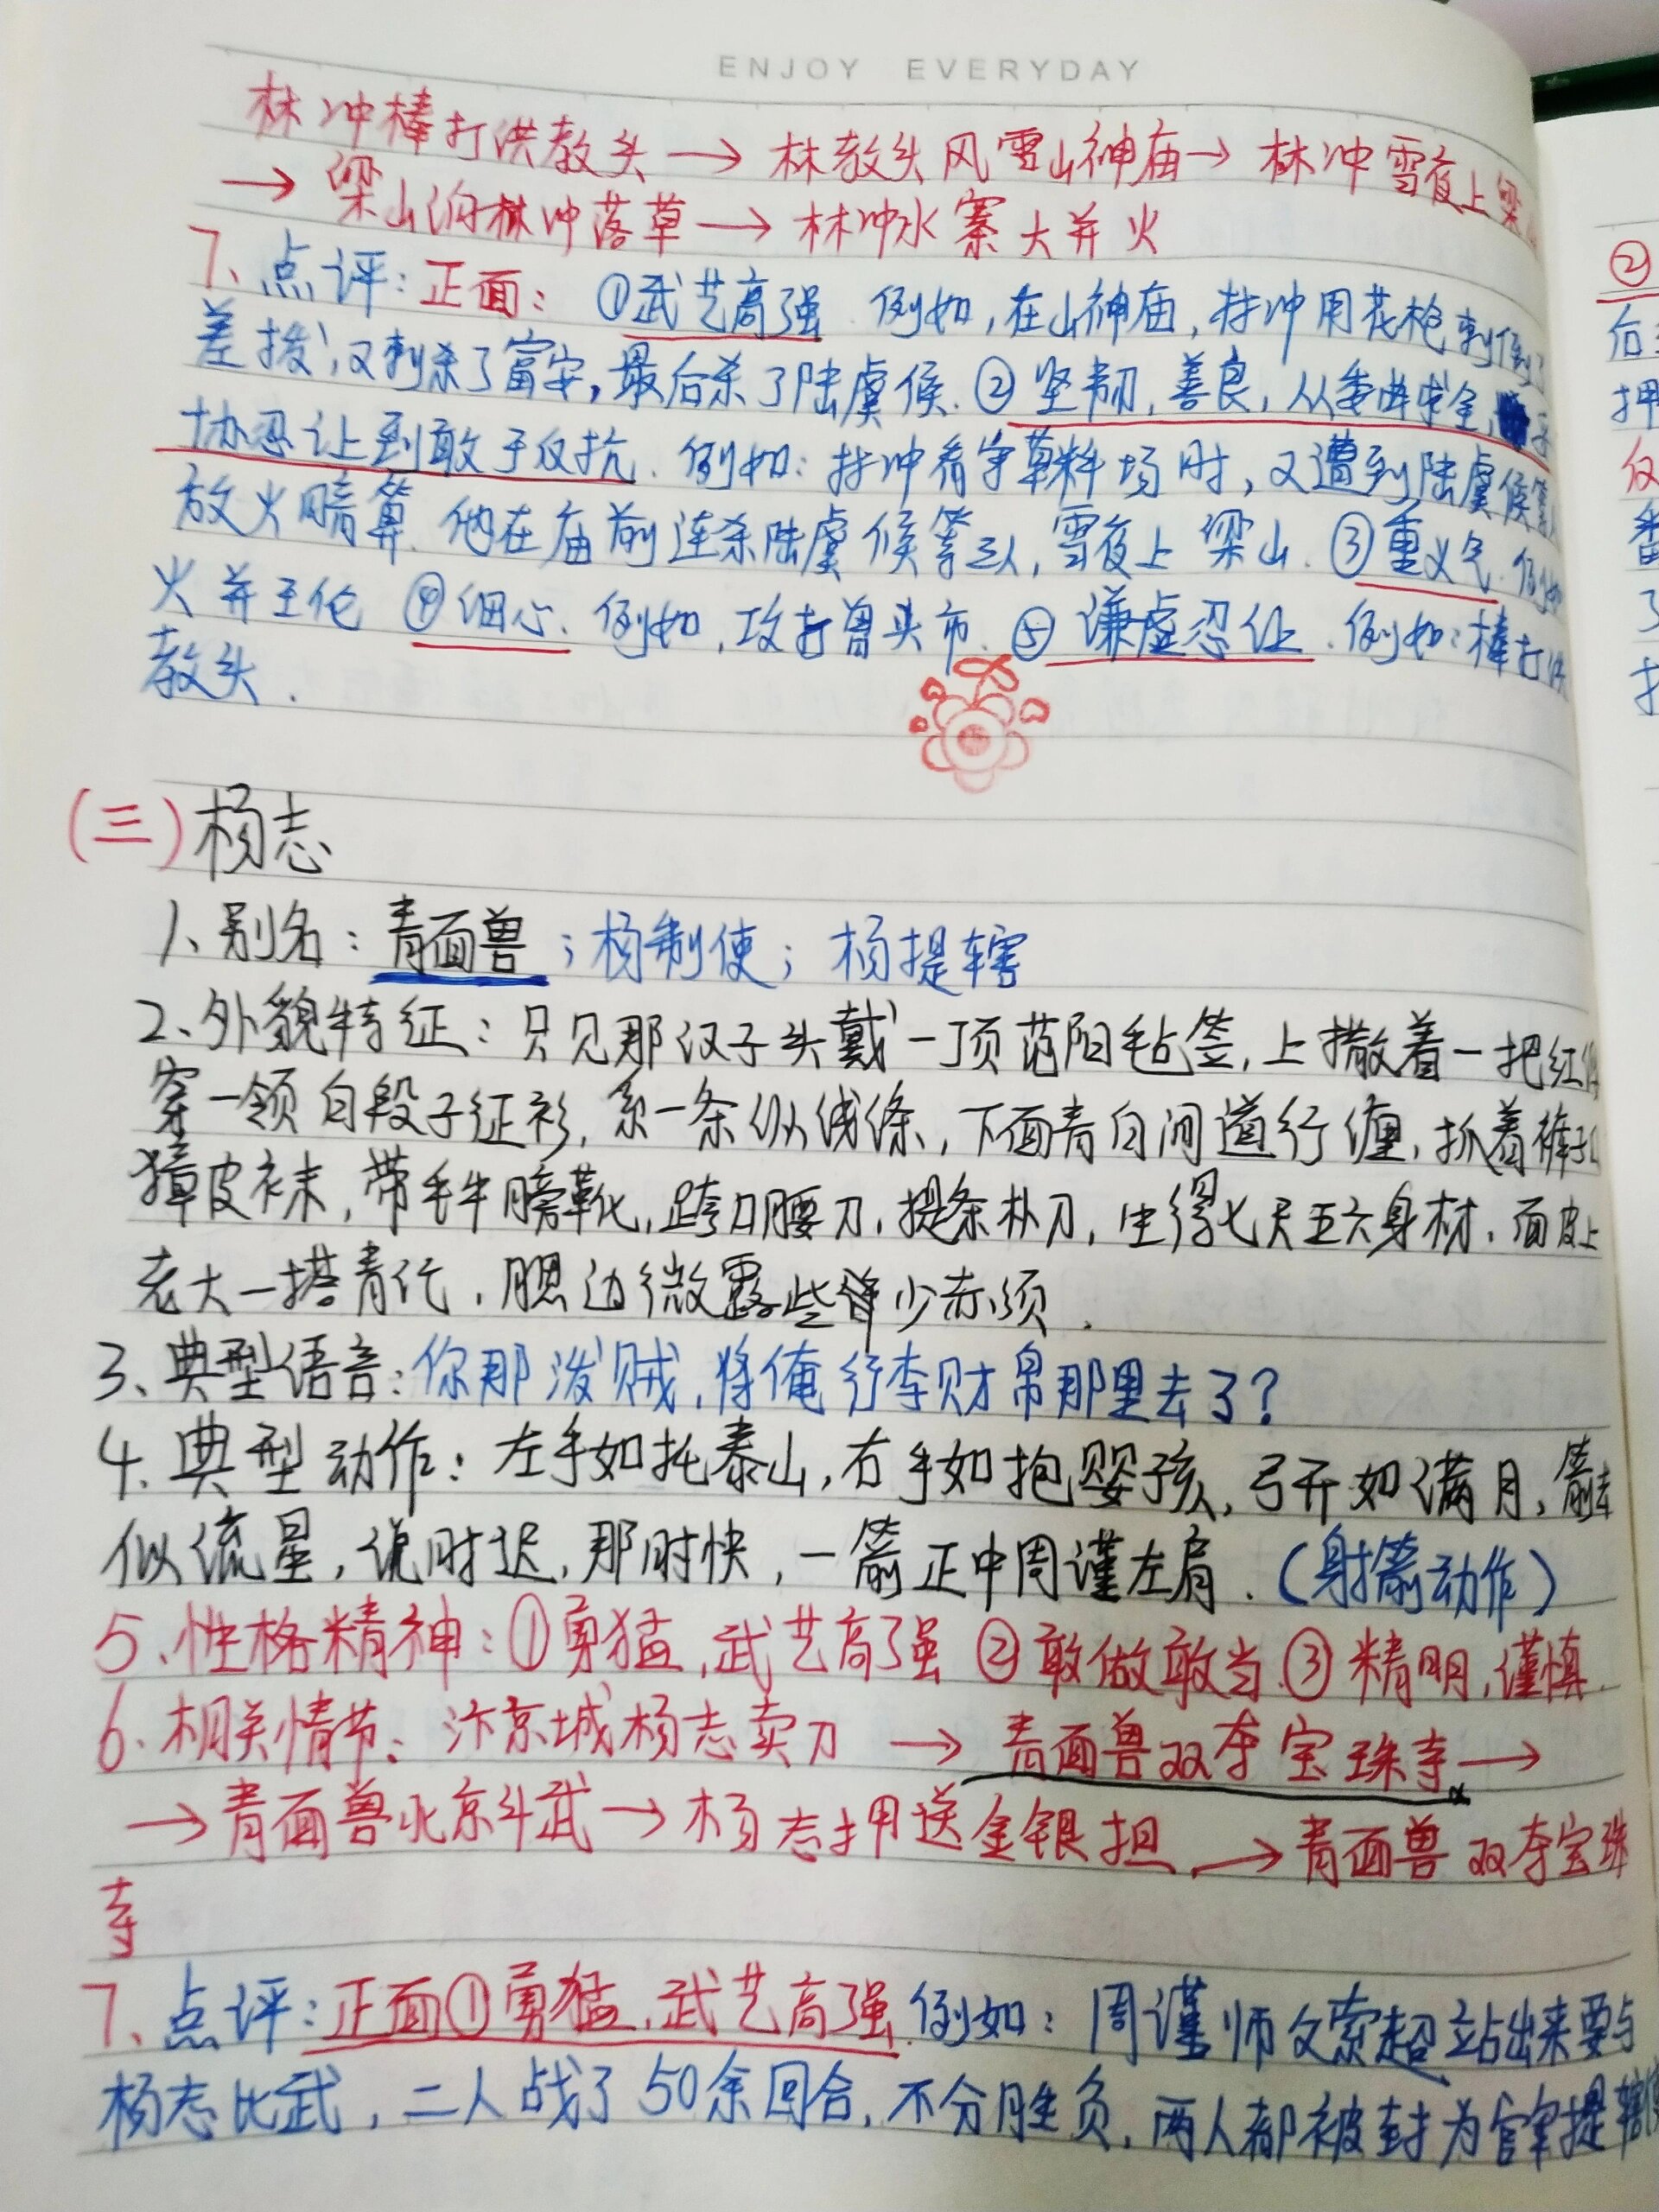 ENJOY EVERYDAY
林冲棒打洪教头→林教头风雪山神庙→林冲雪夜上梁
→梁山泊林冲落草→林冲水寨大并火
7、点评：正面：①武艺高强.例如,在山神庙,林冲用花枪刺倒了
差拨,又刺杀了富安,最后杀了陆虞候.②坚韧,善良,从委曲求全,
协忍让到敢于反抗.例如:林冲看守草料场时,又遭到陆虞候等人
放火暗算.他在庙前连杀陆虞候等三人,雪夜上梁山.③重义气.例如
火并王伦 ④细心.例如,攻打曾头市.⑤谦虚忍让.例如:棒打洪
教头.
(三)杨志
1、别名：青面兽；杨制使；杨提辖
2、外貌特征：只见那汉子头戴一顶范阳毡笠,上撒着一把红
穿一领白段子征衫,系一条纵线绦,下面青白间道行缠,抓着裤子口
獐皮袜,带毛牛膀靴,跨口腰刀,提条朴刀,生得七尺五六身材,面皮上
老大一搭青记,腮边微露些少赤须.
3、典型语言：你那泼贼,将俺行李财帛那里去了?
4.典型动作：左手如托泰山,右手如抱婴孩,弓开如满月,箭去
似流星,说时迟,那时快,一箭正中周谨左肩.(射箭动作)
5、性格精神：①勇猛,武艺高强 ②敢做敢当.③精明,谨慎.
6.相关情节：汴京城杨志卖刀→青面兽双夺宝珠寺→
→青面兽北京斗武→杨志押送金银担→青面兽双夺宝珠
寺
7、点评：正面①勇猛,武艺高强.例如：周谨师父索超站出来要与
杨志比武,二人战了50余回合,不分胜负,两人都被封为官军提辖使